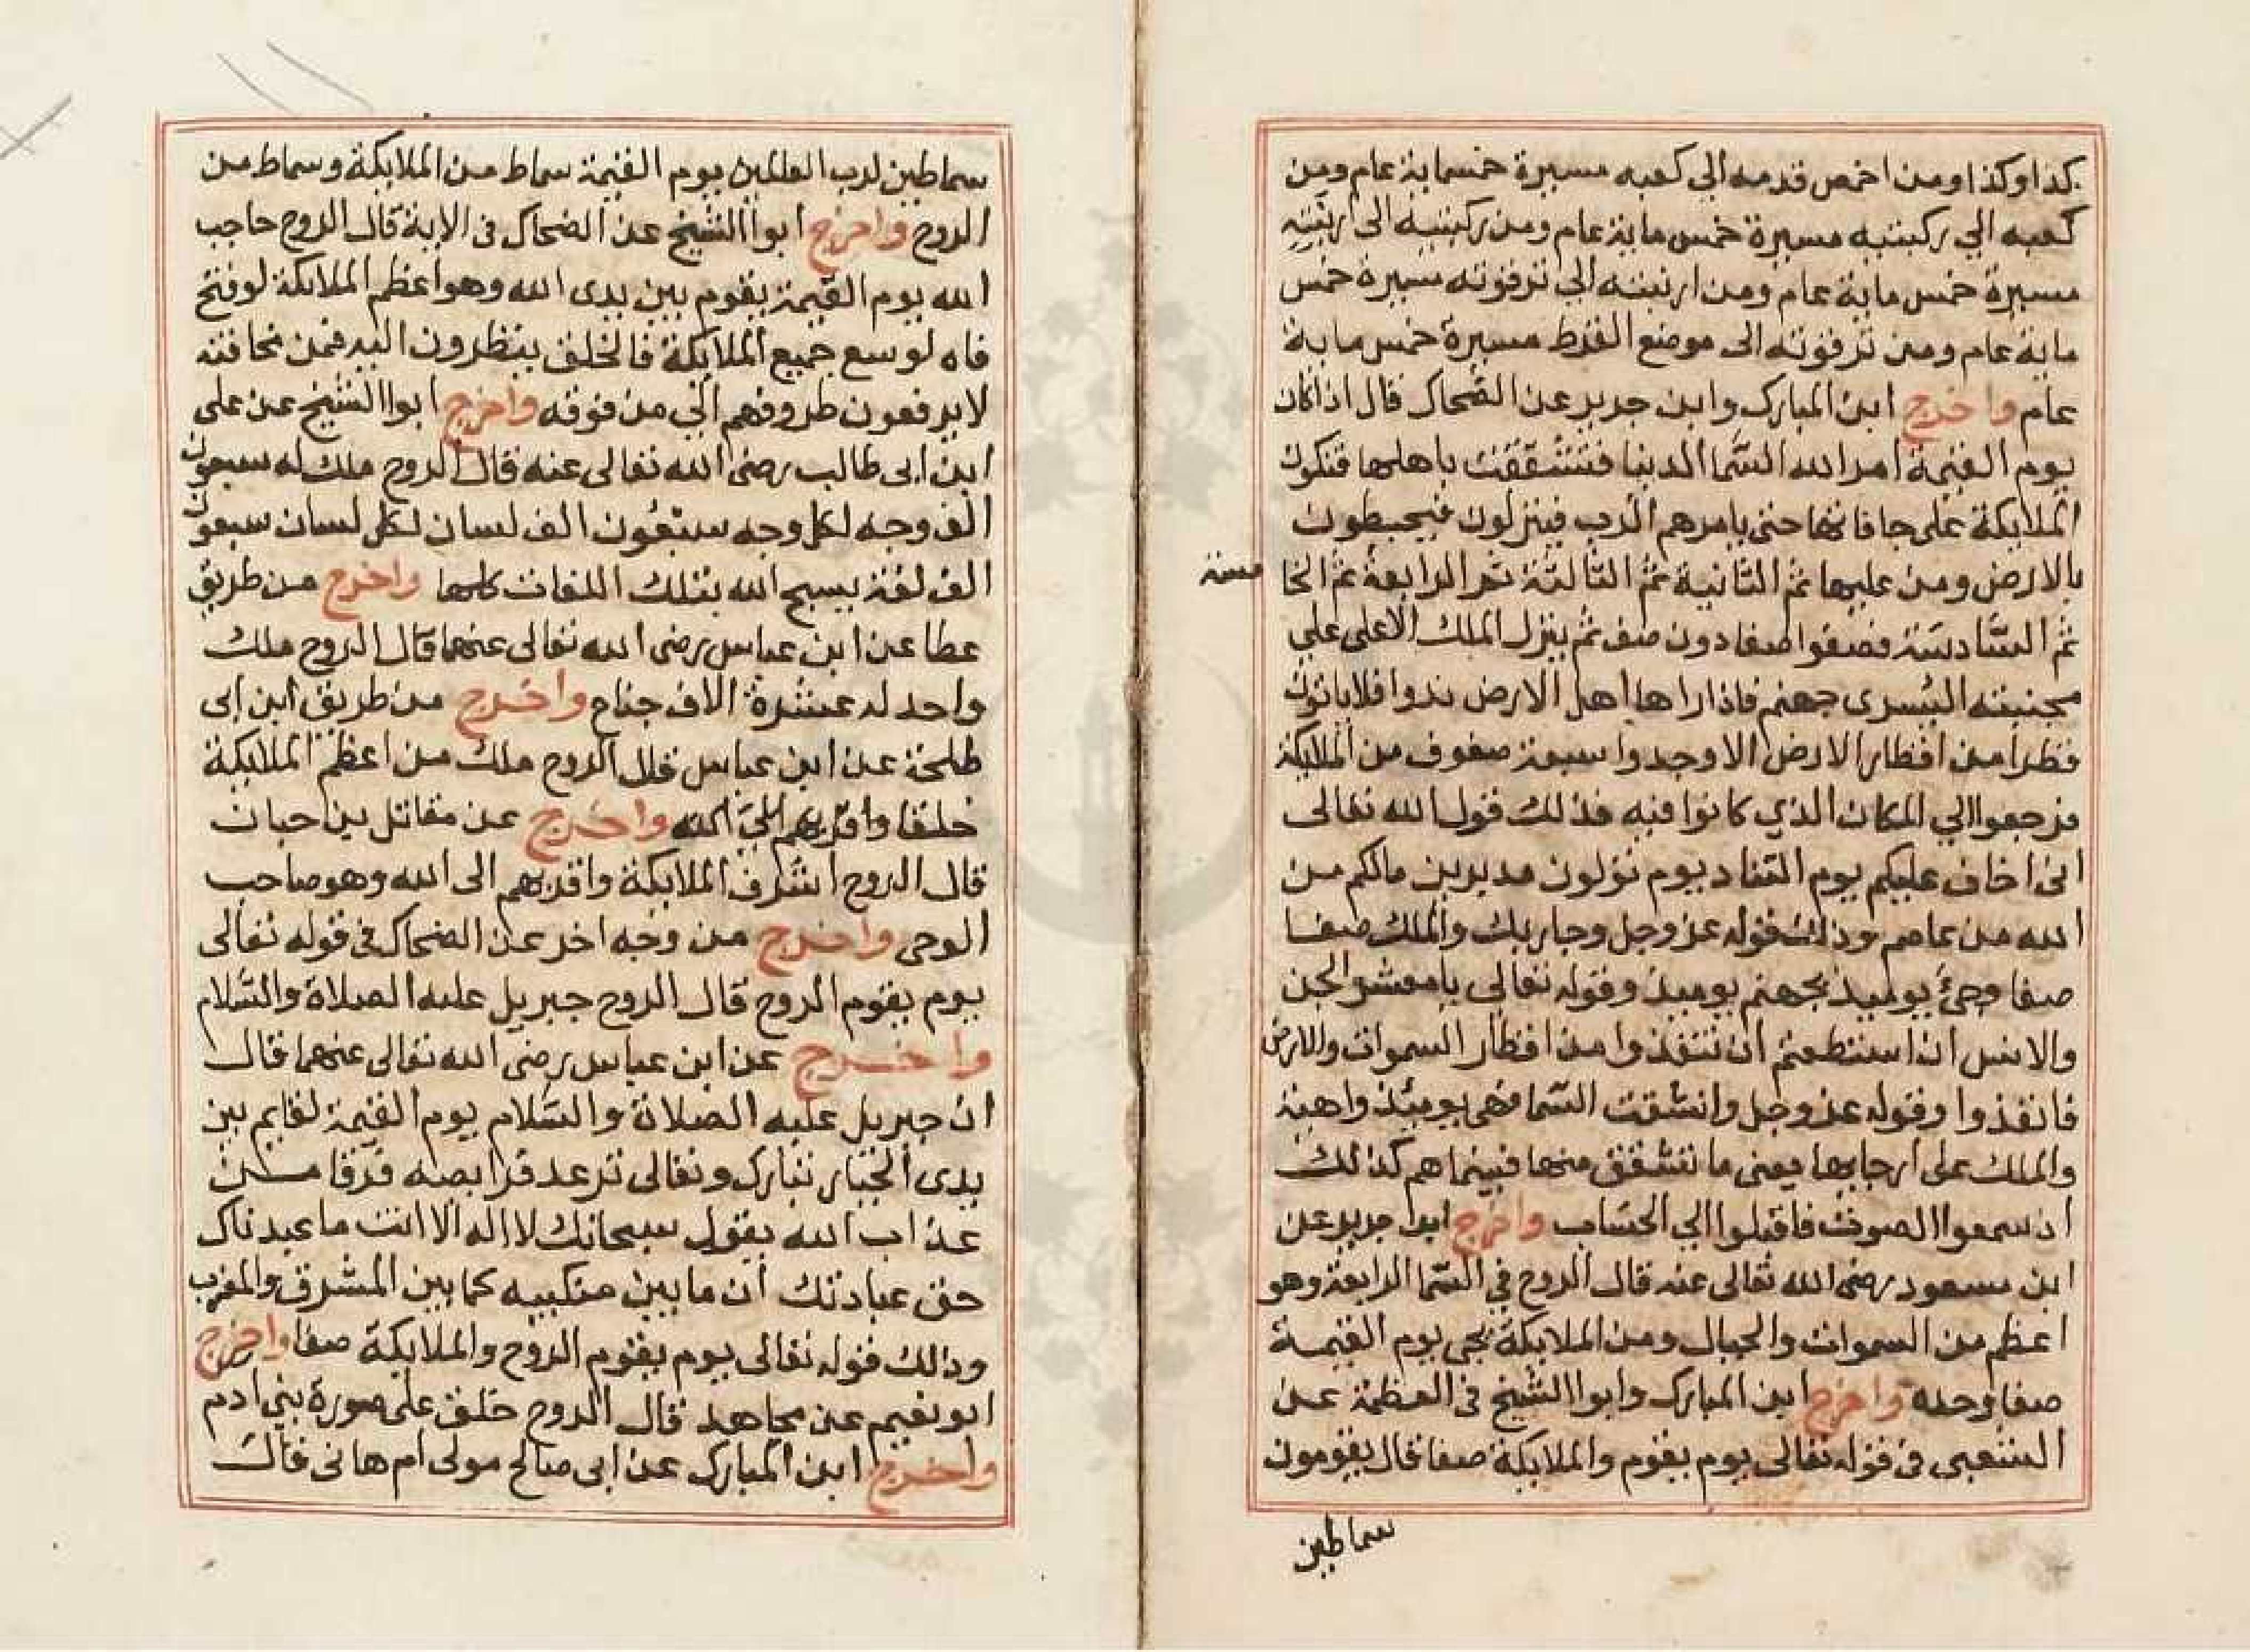 كذا وكذا ومن اخمص قدمه الي كعبه مسيرة خمسماية عام ومن
كعبه الي ركبتيه مسيرة خمس ماية عام ومن ركبتيه الى ارنبته
مسيرة خمس ماية عام ومن ارنبته الي ترقوته مسيرة خمس
ماية عام ومن ترقوته الى موضع القرط مسيرة خمس ماية
عام واخرج ابن المبارك وابن جرير عن الضحاك قال اذا كان
يوم القيمة امر الله السما الدنيا فتشققت باهلها فتكون
الملايكة على حافاتها حتى يامرهم الرب فينزلون فيحيطون
بالارض ومن عليها ثم الثانية ثم الثالثة ثم الرابعة ثم الخا مسة
ثم السادسة فصفوا صفا دون صف ثم ينزل الملك الاعلى علي
مجنبته اليسرى جهنم فاذا راها اهل الارض ندوا فلا ياتون
قطرا من اقطار الارض الا وجدوا سبعة صفوف من الملايكة
فرجعوا الي المكان الذي كانوا فيه فذلك قول الله تعالى
انى اخاف عليكم يوم التناد يوم تولون مديرين مالكم من
الله من عاصم وذلك قوله عز وجل وجا ربك والملك صفا
صفا وجئ يوميذ بجهنم يوميذ وقوله تعالي يا معشر الجن
والانس ان استطعتم ان تنفذوا من اقطار السموات والارض
فانفذوا وقوله عز وجل وانشقت السما فهي يوميئذ واهية
والملك على ارجايها يعنى ما تشقق منها فبينما هم كذلك
اذ سمعوا الصوت فاقبلوا الي الحساب واخرج ابن جرير عن
ابن مسعود رضى الله تعالى عنه قال الروح في السما الرابعة وهو
اعظم من السموات والجبال ومن الملايكة يجى يوم القيمة
صفا وحده واخرج ابن المبارك وابوا الشيخ فى العظمة عن
الشعبى فى قوله تعالى يوم يقوم والملايكة صفا قال يقومون
سماطين
سماطين لرب العالمين يوم القيمة سماط من الملايكة وسماط من
الروح واخرج ابوا الشيخ عن الضحاك فى الاية قال الروح حاجب
الله يوم القيمة يقوم بين يدى الله وهو اعظم الملائكة لو فتح
فاه لوسع جميع الملايكة فالخلق ينظرون اليه فمن مخافته
لا يرفعون طروفهم الي من فوقه واخرج ابوا الشيخ عن على
ابن ابى طالب رضى الله تعالى عنه قال الروح ملك له سبعون
الف وجه لكل وجه سبعون الف لسان لكل لسان سبعون
الف لغة يسبح الله بتلك اللغات كلها واخرج من طريق
عطا عن ابن عباس رضى الله تعالى عنهما قال الروح ملك
واحد له عشرة الاف جناح واخرج من طريق ابن ابى
طلحة عن ابن عباس قال الروح ملك من اعظم الملايكة
خلقا واقربهم الي الله واخرج عن مقاتل بن حبان
قال الروح اشرف الملايكة واقربهم الى الله وهو صاحب
الوحى واخرج من وجه اخر عن الضحاك فى قوله تعالى
يوم يقوم الروح قال الروح جبريل عليه الصلاة والسلام
واخرج عن ابن عباس رضى الله تعالى عنهما قال
ان جبريل عليه الصلاة والسلام يوم القيمة لقايم بين
يدى الجبار تبارك وتعالى ترعد فرايصه فرقا من
عذاب الله يقول سبحانك لا اله الا انت ما عبدناك
حق عبادتك ان ما بين منكبيه كما بين المشرق والمغرب
وذلك قوله تعالى يوم يقوم الروح والملايكة صفا واخرج
ابو نعيم عن مجاهد قال الروح خلق على صورة بني ادم
واخرج ابن المبارك عن ابى صالح مولى ام هانى قال